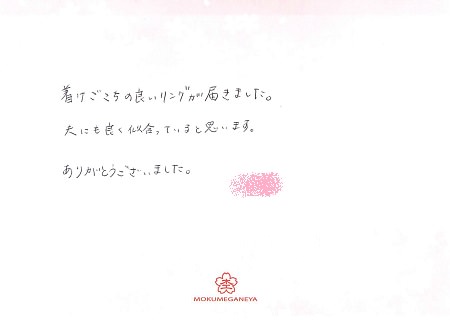 着けごこちの良いリングが届きました。
夫にも良く似合っていると思います。
ありがとうございました。
MOKUMEGANEYA